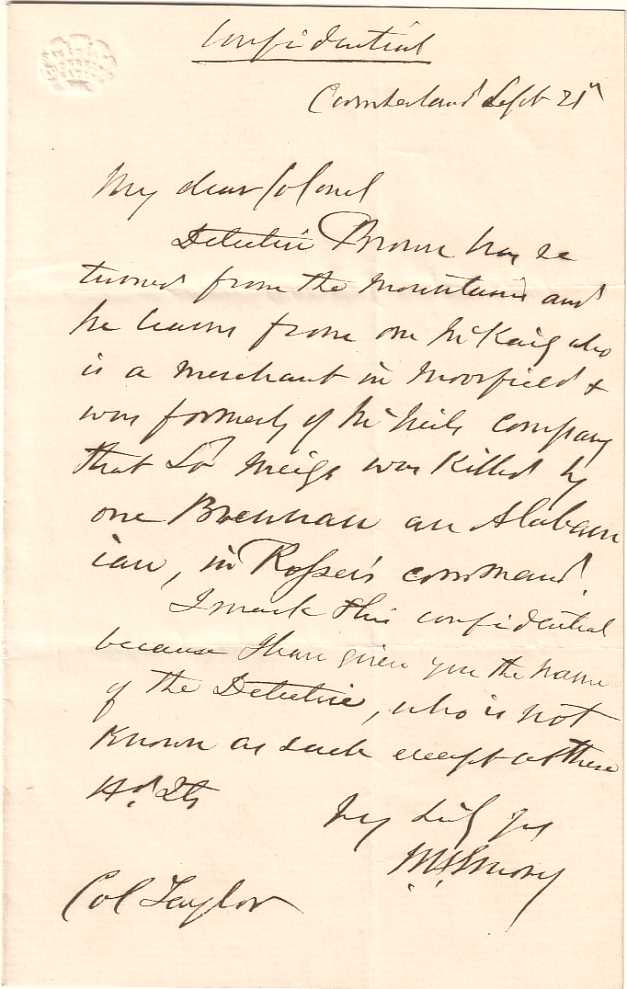 Confidential
Cumberland Sept 21st
My dear Colonel
Detective Brown has re
turned from the mountains and
he learns from one McKaig who
is a merchant in Moorfield &
was formerly of McNeils company
that Lt Meigs was killed by
one Brennan an Alabam
ian, in Rosser's command.
I mark this confidential
because I have given you the name
of the Detective, who is not
known as such except at these
Hd Qts
Very truly yrs
W H Emory
Col Taylor